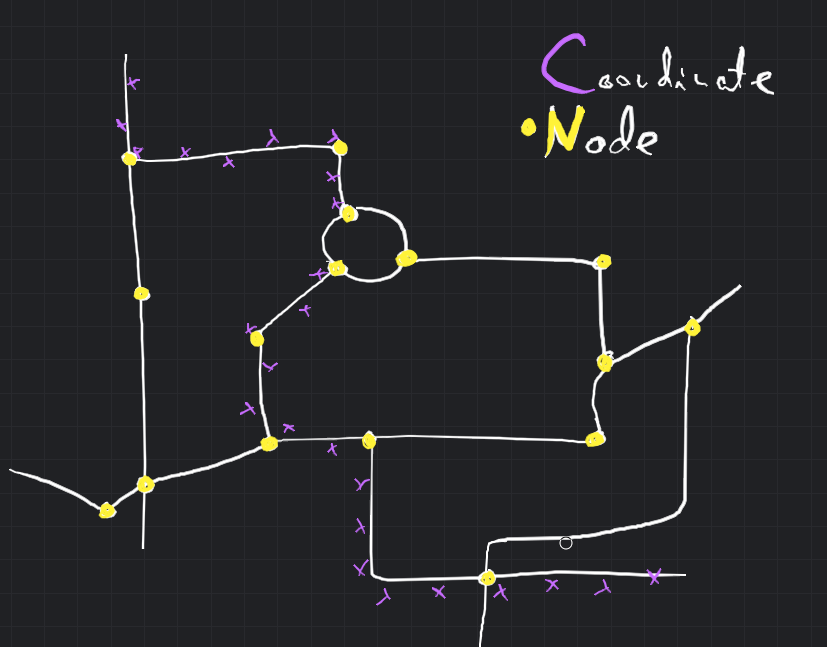 Coordinate
Node